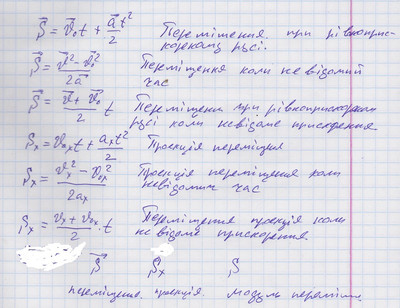 S⃗ = v⃗₀t + a⃗t²/2 Переміщення при рівноприс-
кореному русі.
S⃗ = (v⃗² - v⃗₀²)/2a⃗ Переміщення коли не відомий
час
S⃗ = (v⃗ + v⃗₀)/2 t Переміщення при рівноприскореном
русі коли невідаме прискорення
Sₓ = v₀ₓt + aₓt²/2 Проекція переміщен
Sₓ = (vₓ² - v₀ₓ²)/2aₓ Проекція переміщення коли
невідомим час
Sₓ = (vₓ + v₀ₓ)/2 · t Переміщення проекція коли
не відоме прискорення.
S⃗ Sₓ S
переміщення. проекція. модуль переміщ